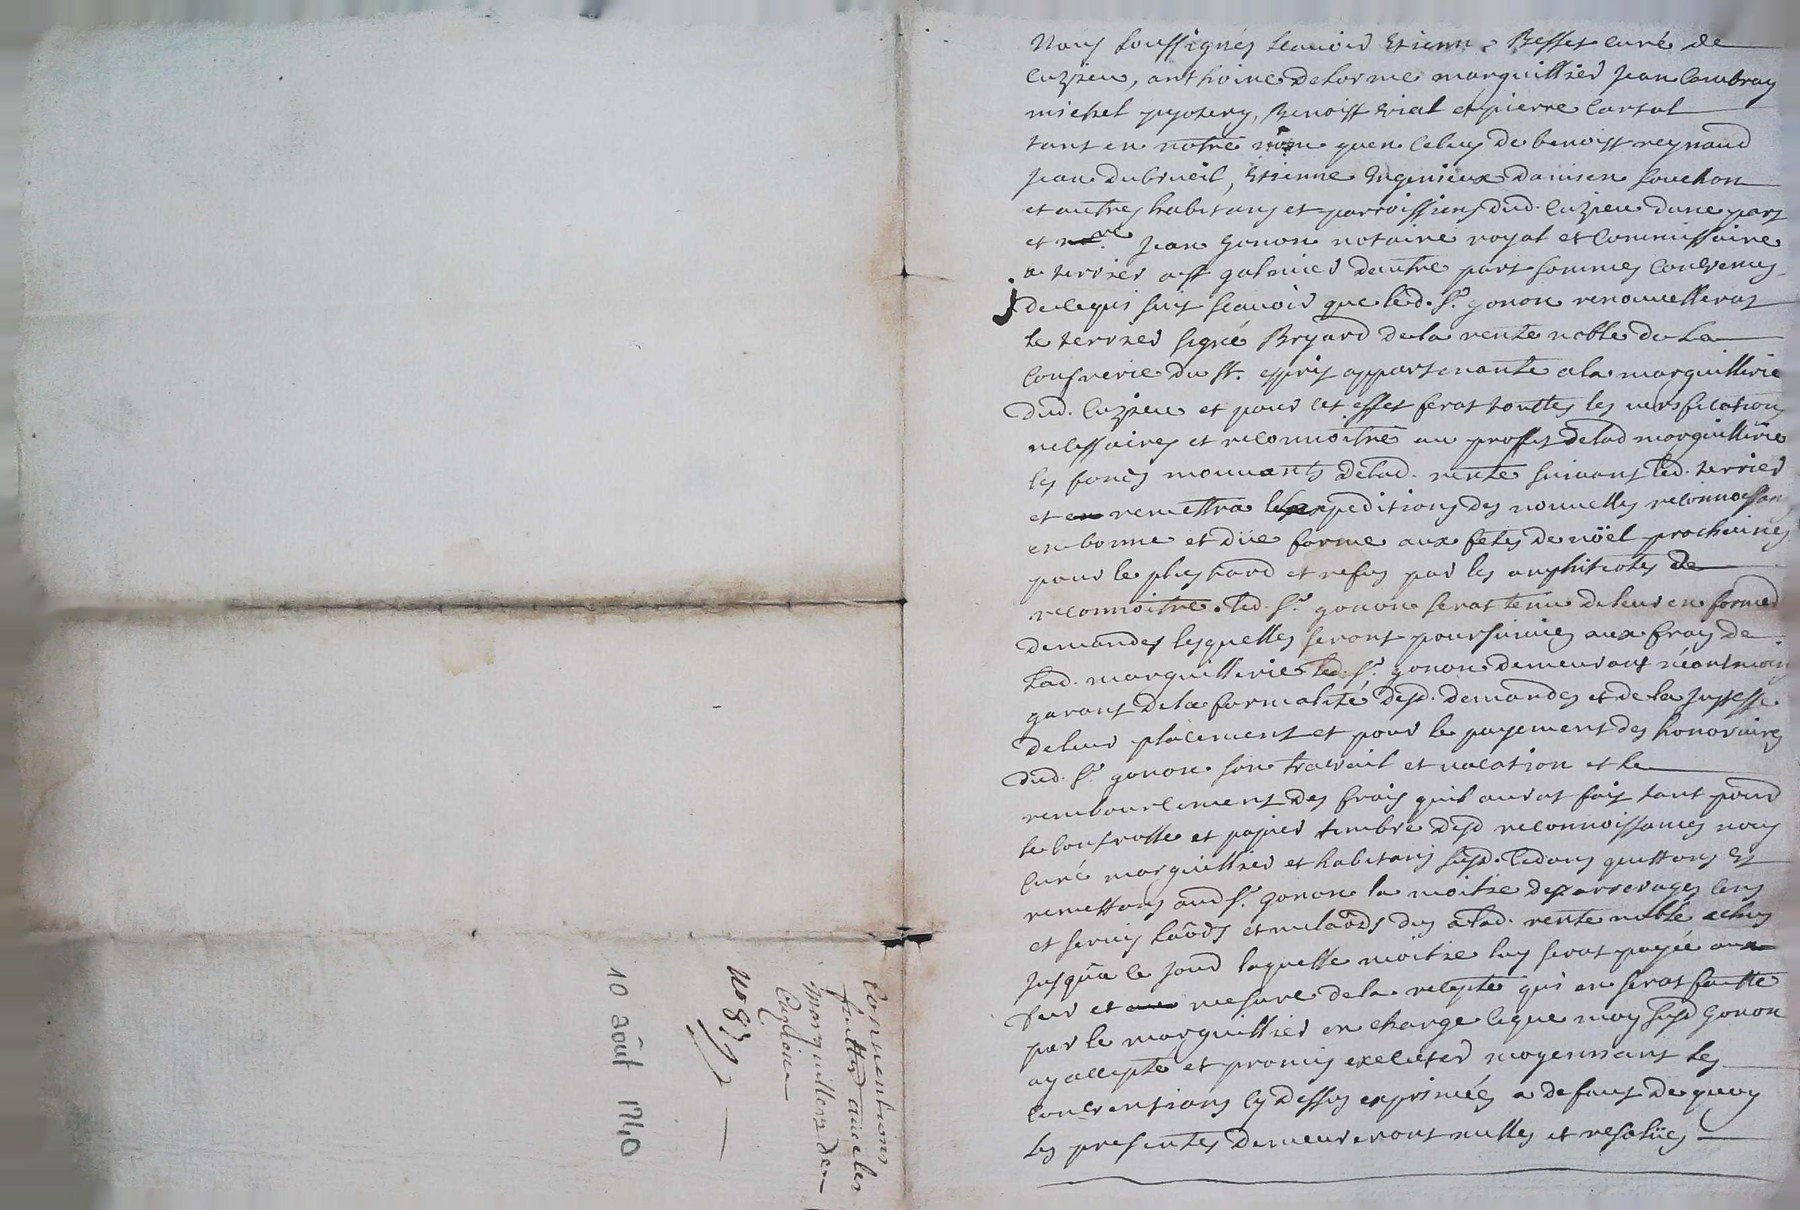 Nous soussignés scavoir Etienne Besset curé de
Cuzieu, anthoine Delorme marguillier jean Combray
michel Benoist Vial et pierre
tant en notre nom quen celuy de benoist reynaud
jean Dubrueil, Etienne Ingenieux Damien souchon
et autres habitans et parroissiens dud. Cuzieu dune part
et me. jean gonon notaire royal et Commissaire
a terrier a st galmier dautre part sommes convenus
de ce qui suit scavoir que led. sr. gonon renouvellerat
le terrier signé Bryard de la rente noble de La
Confrerie du st. esprit appartenante a la marguillerie
dud. Cuzieu et pour cet effet ferat touttes les verifications
necessaires et reconnoitre au proffit de lad marguillerie
les fonds mouvants de lad. rente suivant led. terrier
et remettra les expeditions des nouvelles reconnoissan
en bonne et düe forme aux fêtes de nöel prochaines
pour le plus tard et refus par les amphiteotes de
reconnoitre led. sr. gonon serat tenu de leur en former
demandes lesquelles seront poursuivies aux frais de
Lad. marguillerie led. sr. gonon demeurant néantmoins
garant de la formalité desd. demandes et de la justesse
de leur placement et pour le payement des honoraires
dud. sr. gonon son travail et vacation et le
remboursement des frais quil aurat fait tant pour
le controlle et papier timbré desd reconnoissances nous
Curé marguillier et habitans susd. cedons quittons et
remettons aud sr. gonon la moitié des arrerages cens
et servis laôds et milaôds dus a lad. rente noble echus
jusqua ce jour laquelle moitié luy serat payée au
fur et mesure de la recepte qui en serat faitte
par le marguillier en charge ce que moy susd Gonon
ay accepté et promis executer moyennant les
Conventions cy dessus exprimées a defaut de quoy
les presentes demeureront nulles et resolües
Connventions
faittes avec les
marguilliers de
Cuzieu
no 8
10 août 1740